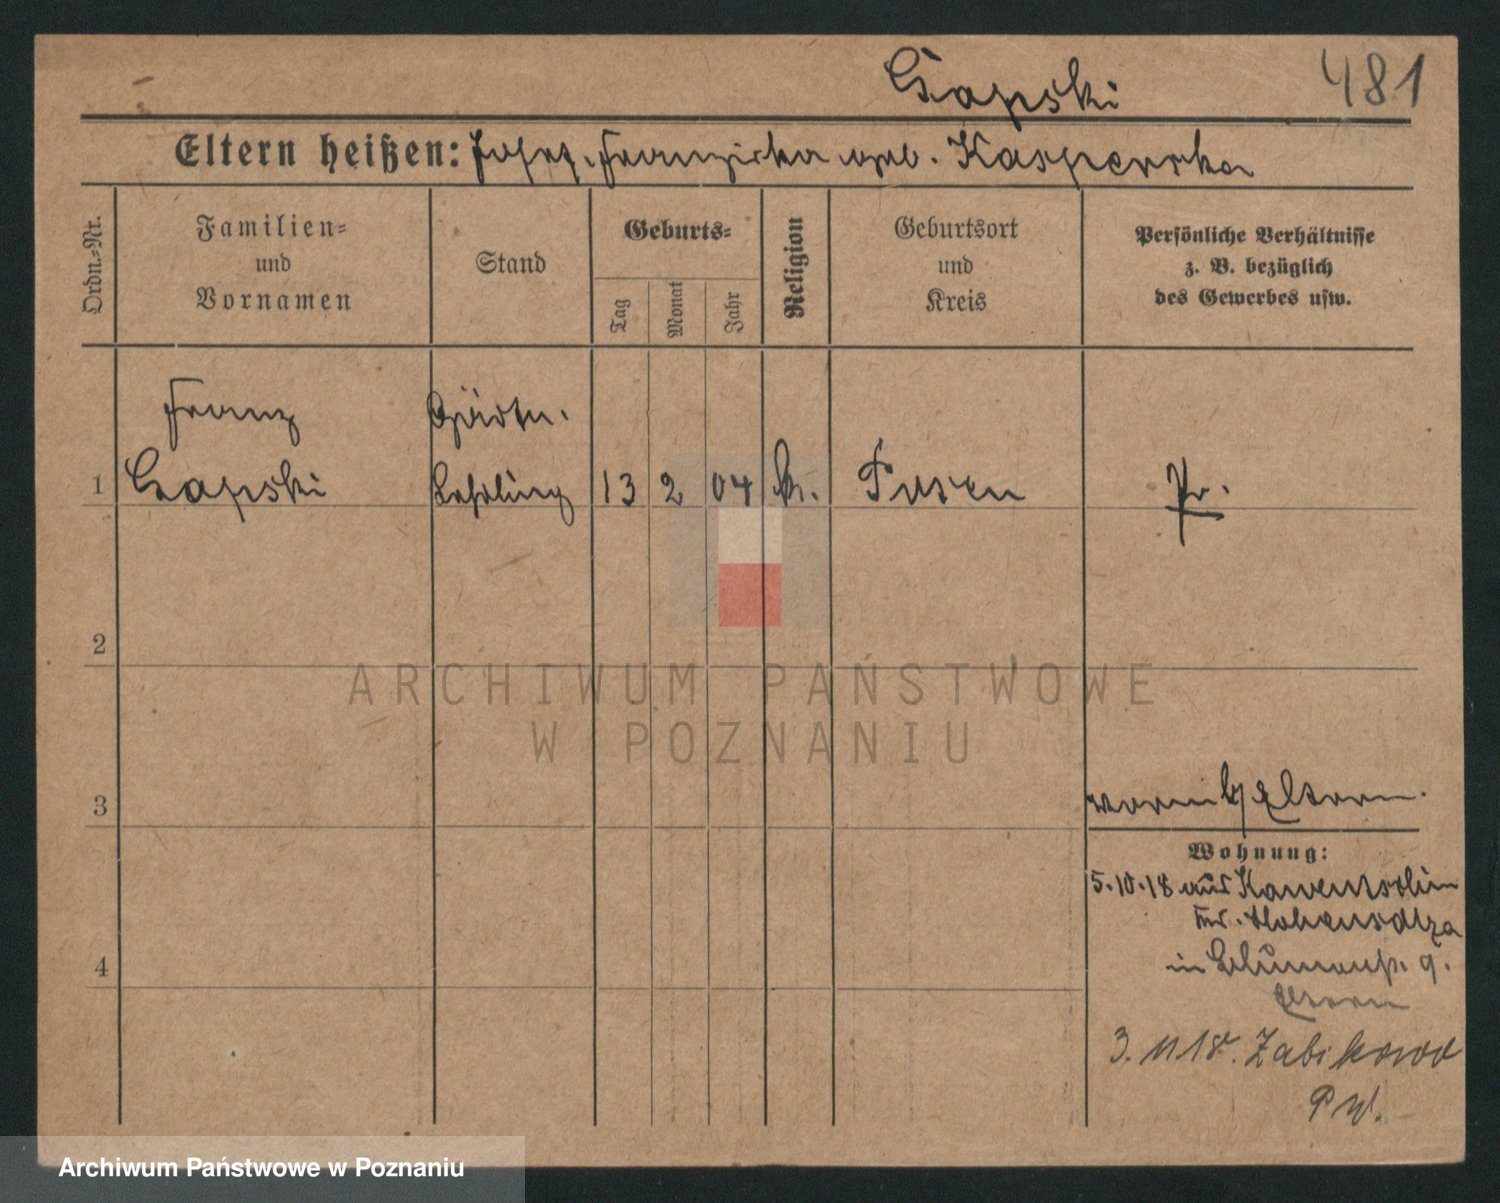 Czapski 481
Eltern heißen: Josef, Franziska geb. Kasperska
Ordn.-Nr.
Familien-
und
Vornamen
Stand
Geburts-
Tag
Monat
Jahr
Religion
Geburtsort
und
Kreis
Persönliche Verhältnisse
z. B. bezüglich
des Gewerbes usw.
Franz Gärtn.
1 Czapski Lehrling 13 2 04 k. Posen Pr.
2
ARCHIWUM PAŃSTWOWE
W POZNANIU
3
b/ Eltern.
Wohnung:
5.10.18 aus
Kr. Hohensalza
4
in Blumenstr. 9.
Eltern
3. 11 18. Zabikowo
PW.
Archiwum Państwowe w Poznaniu